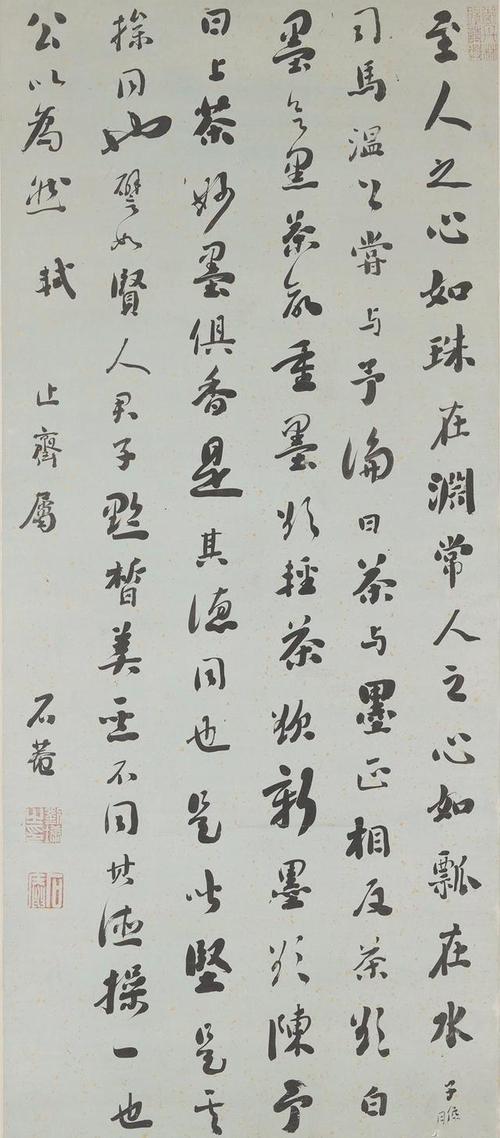 至人之心如珠在淵常人之心如瓢在水 子瞻
司馬溫公嘗與予論曰茶與墨正相反茶欲白
墨欲黑茶欲重墨欲輕茶欲新墨欲陳予
曰上茶妙墨俱香是其德同也是皆堅是其
操同也譬如賢人君子黔皙美惡不同其德操一也
公以為然 軾 止齋屬 石菴